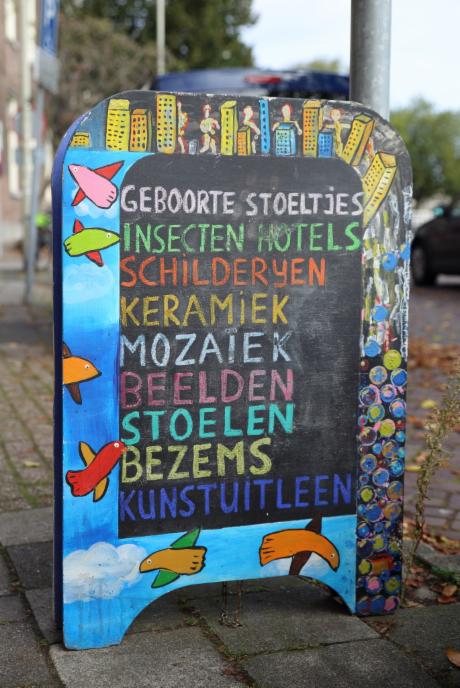 GEBOORTE STOELTJES
INSECTEN HOTELS
SCHILDERYEN
KERAMIEK
MOZAÏEK
BEELDEN
STOELEN
BEZEMS
KUNSTUITLEEN